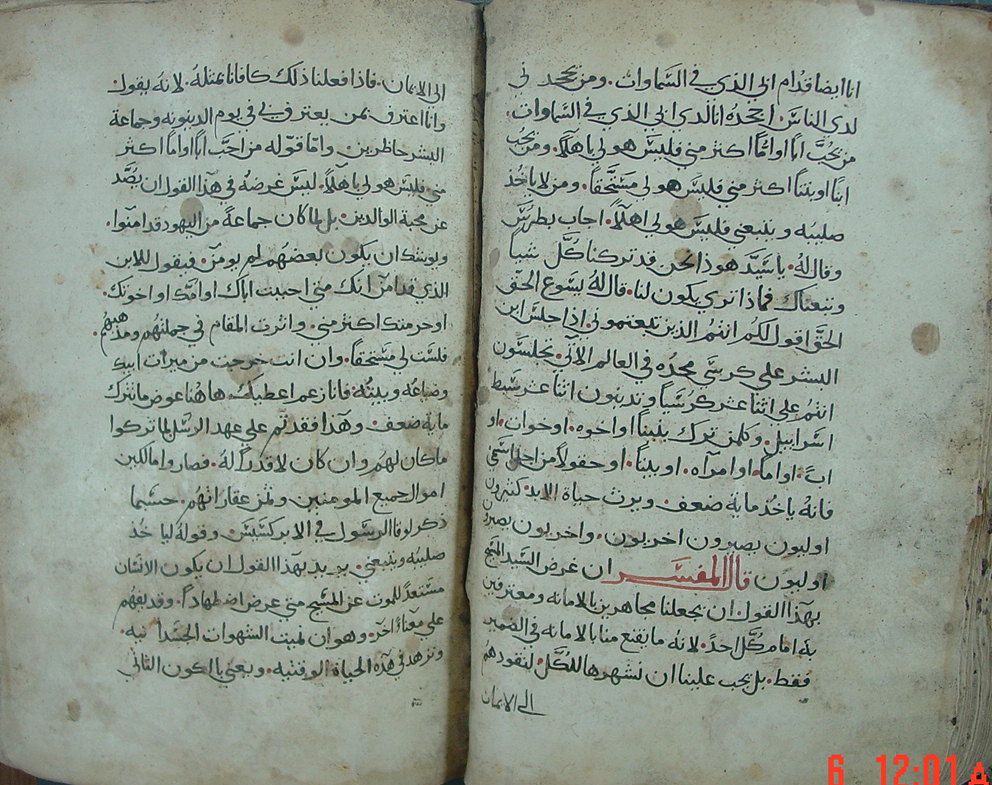 انا ايضا قدام ابي الذي في السماوات. ومن يجحدني
لدى الناس اجحده انا لدى ابي الذي في السماوات.
من يحب ابًا او امًا اكثر مني فليس هو لي باهلًا. ومن يحب
ابنًا او بنتًا اكثر مني فليس هو لي مستحقًا. ومن لا ياخذ
صليبه ويتبعني فليس هو لي اهلًا. اجاب بطرس
وقال له. يا سيد هوذا نحن قد تركنا كل شيا
وتبعناك فماذا ترى يكون لنا. قال له يسوع الحق
الحق اقول لكم انتم الذين تبعتموني اذا جلس ابن
البشر على كرسي مجده في العالم الاتي. تجلسون
انتم على اثنا عشر كرسيًا وتدينون اثنا عشر سبط
اسراييل. وكلمن ترك بنينا او اخوه. او خوات. او
ابً. او امًا. او امراه. او بيتًا. او حقولًا من اجل اسمي
فانه ياخذ ماية ضعف ويرث حياة الابد. كثيرون
اولون يصيرون اخريون. واخريون يصيرو
اولون قال المفسر ان غرض السيد المسيح
بهذا القول ان يجعلنا مجاهرين بالامانه ومعترفين
به امام كل احدً. لانه ما يقنع منا بالامانه في الضمير
فقط. بل يجب علينا ان نشهرها للكل لنقودهم
الى الايمان
الى الايمان. فاذا فعلنا ذلك كافانا بمثله. لانه يقول
وانا اعترف بمن يعترف بي في يوم الدينونه وجماعة
البشر حاظرين. واما قوله من احب ابًا او امًا اكثر
مني فليس هو لي باهلًا. ليس غرضه في هذا القول ان يصد
عن محبة الوالدين. بل لما كان جماعة من اليهود قد امنوا.
ويوشك ان يكون بعضهم لم يومن. فيقول للابن
الذي قد امن انك متى احببت اباك او امك او اخوتك.
او حرمتك اكثر مني. واثرت المقام في جملتهم ومذهبهم.
فلست لي مستحقًا. وان انت خرجت من ميرات ابيك
وضياعه وبيته. فانا زعم اعطيك هاهنا عوض ما تترك
ماية ضعف. وهذا فقد تم على عهد الرسل لما تركوا
ما كان لهم وان كان لا قدرًا له. فصاروا مالكين
اموال جميع المومنين وثمن عقاراتهم. حسبما
ذكر لوقا الرسول في الابركسيس. وقوله لياخذ
صليبه ويتبعني. يريد بهذا القول ان يكون الانسان
مستعدً للموت عن المسيح متى عرض اضطهادًا. وقد يفهم
على معناً اخر. وهو ان نميت الشهوات الجسدانيه.
ونزهد في هذه الحياة الوقتيه. ويعني بالكون الثاني
6 12:01 A